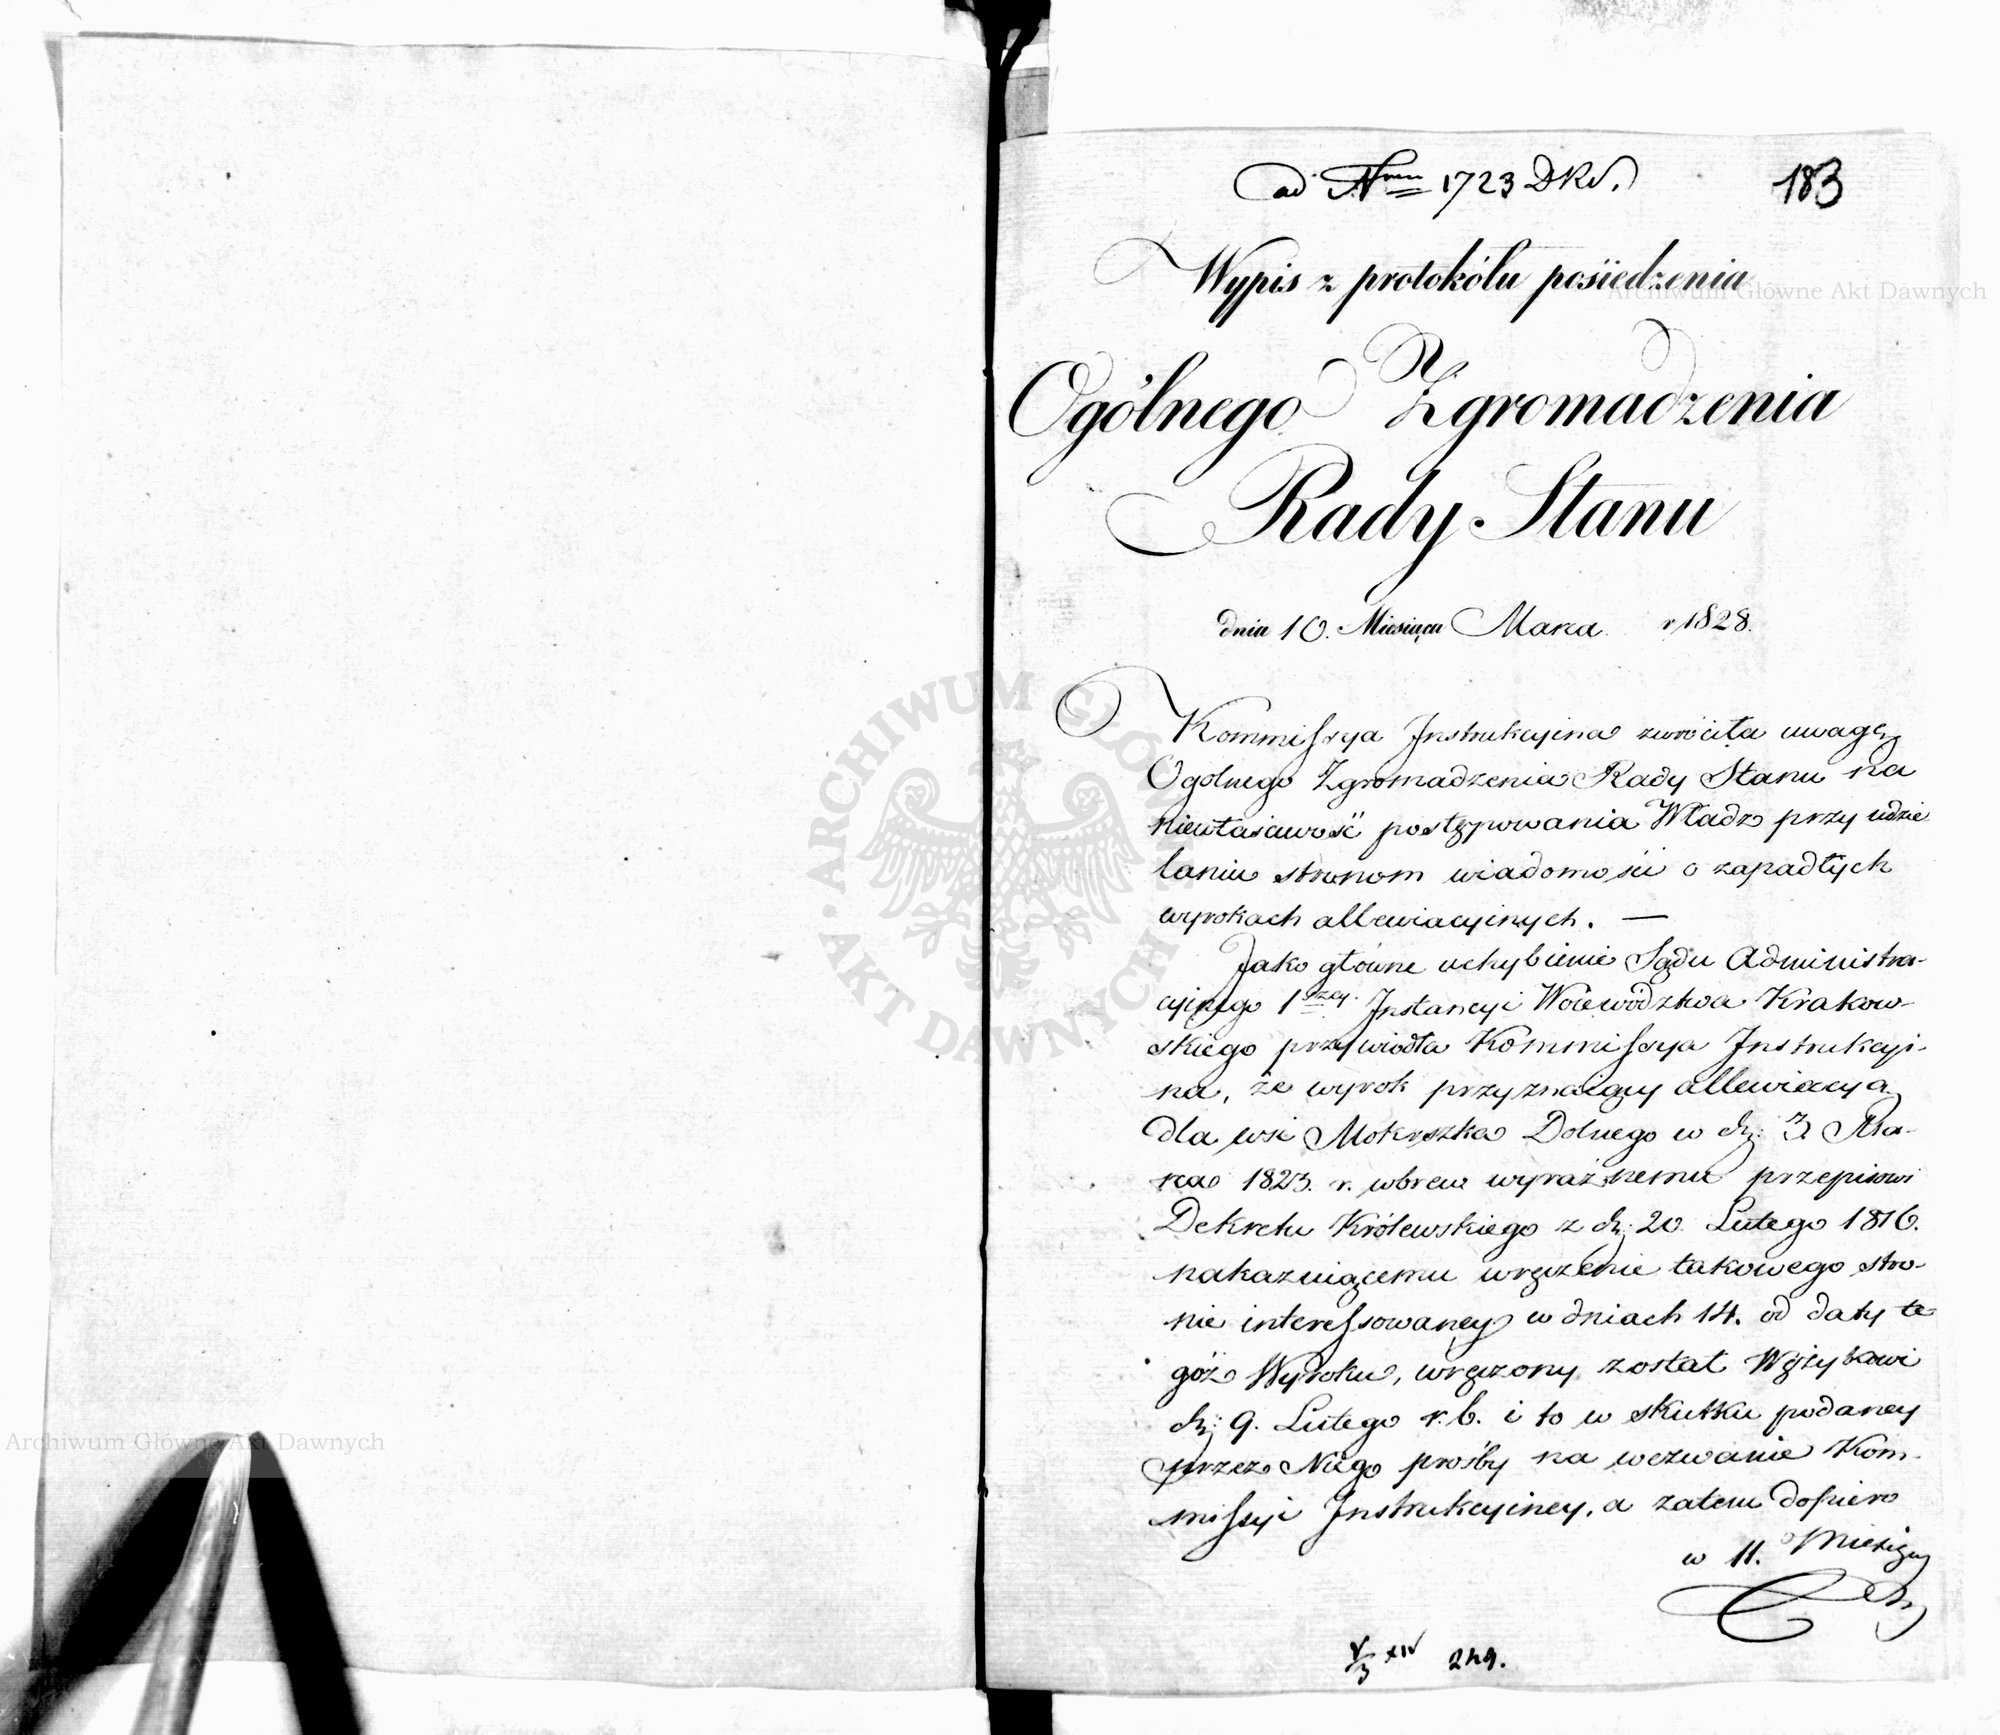 ad Nrum 1723 DKS.
183
Wypis z protokółu posiedzenia
Archiwum Główne Akt Dawnych
Ogólnego Zgromadzenia
Rady Stanu
dnia 10. Miesiąca Marca r 1828.
Kommissya Instrukcyina zwróciła uwagę
Ogolnego Zgromadzenia Rady Stanu na
niewłaściwość postępowania Władz przy udzie
laniu stronom wiadomości o zapadłych
wyrokach allewiacyinych. —
Jako główne uchybienie Sądu Administra-
cyinego 1szey Instancyi Woiewództwa Krakow-
skiego przywiodła Kommissya Instrukcyi-
na, że wyrok przyznaiący allewiacyą
dla wsi Mokrszka Dolnego w d: 3 Mar-
ca 1823. r. wbrew wyraźnemu przepisowi
Dekretu Królewskiego z d: 20 Lutego 1816.
nakazuiącemu wręczenie takowego stro-
nie interessowaney w dniach 14. od daty te
goż Wyroku, wręczony został Wężykowi
d: 9. Lutego r. b. i to w skutku podaney
przez Niego prośby na wezwanie Kom-
missyi Instrukcyiney, a zatem dopiero
w 11. Miesięcy
ARCHIWUM GŁÓWNE AKT DAWNYCH
Archiwum Główne Akt Dawnych
V/3 XIV 249.